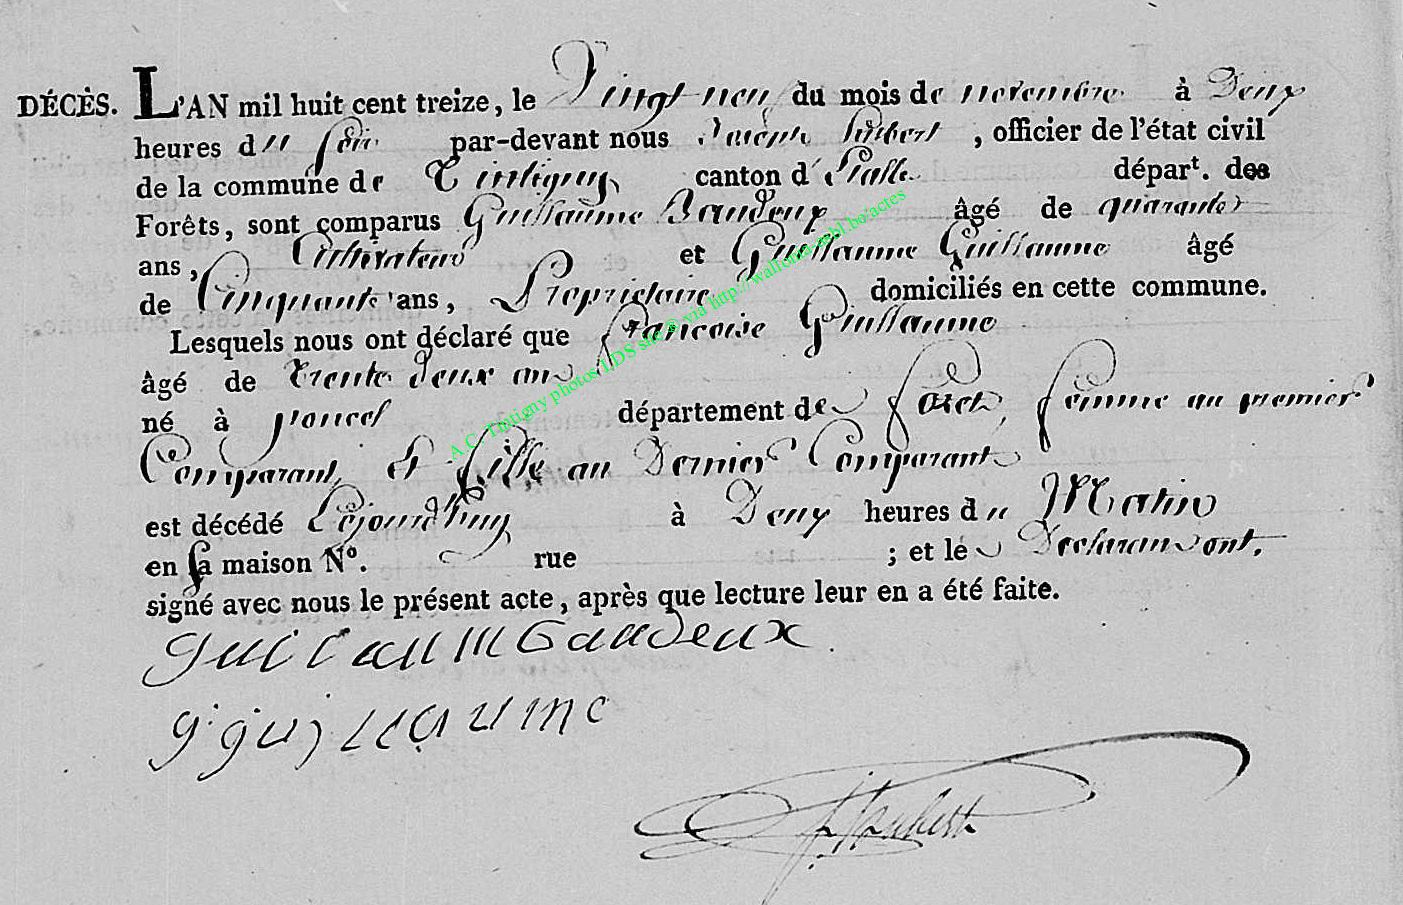 DÉCÈS. L'AN mil huit cent treize, le Vingt neuf du mois de novembre à Deux
heures du soir par-devant nous Joseph hubert, officier de l'état civil
de la commune de Tintigny canton d'Etalle départ. des
Forêts, sont comparus Guillaume Baudeux âgé de quarante
ans, Cultivateur et Guillaume Guillaume âgé
de Cinquante ans, Proprietaire domiciliés en cette commune.
Lesquels nous ont déclaré que francoise Guillaume
âgé de trente deux ans
né à poncel département de foret, femme au premier
Comparant, et fille au Dernier Comparant
est décédé Cejourdhuy à Deux heures du Matin
en sa maison N°. rue ; et le Declarans ont.
signé avec nous le présent acte, après que lecture leur en a été faite.
guillaum Baudeux
g. guillaume
J. hubert
A.C. Tintigny photos LDS site ® via http://wallonia-asbl.be/actes